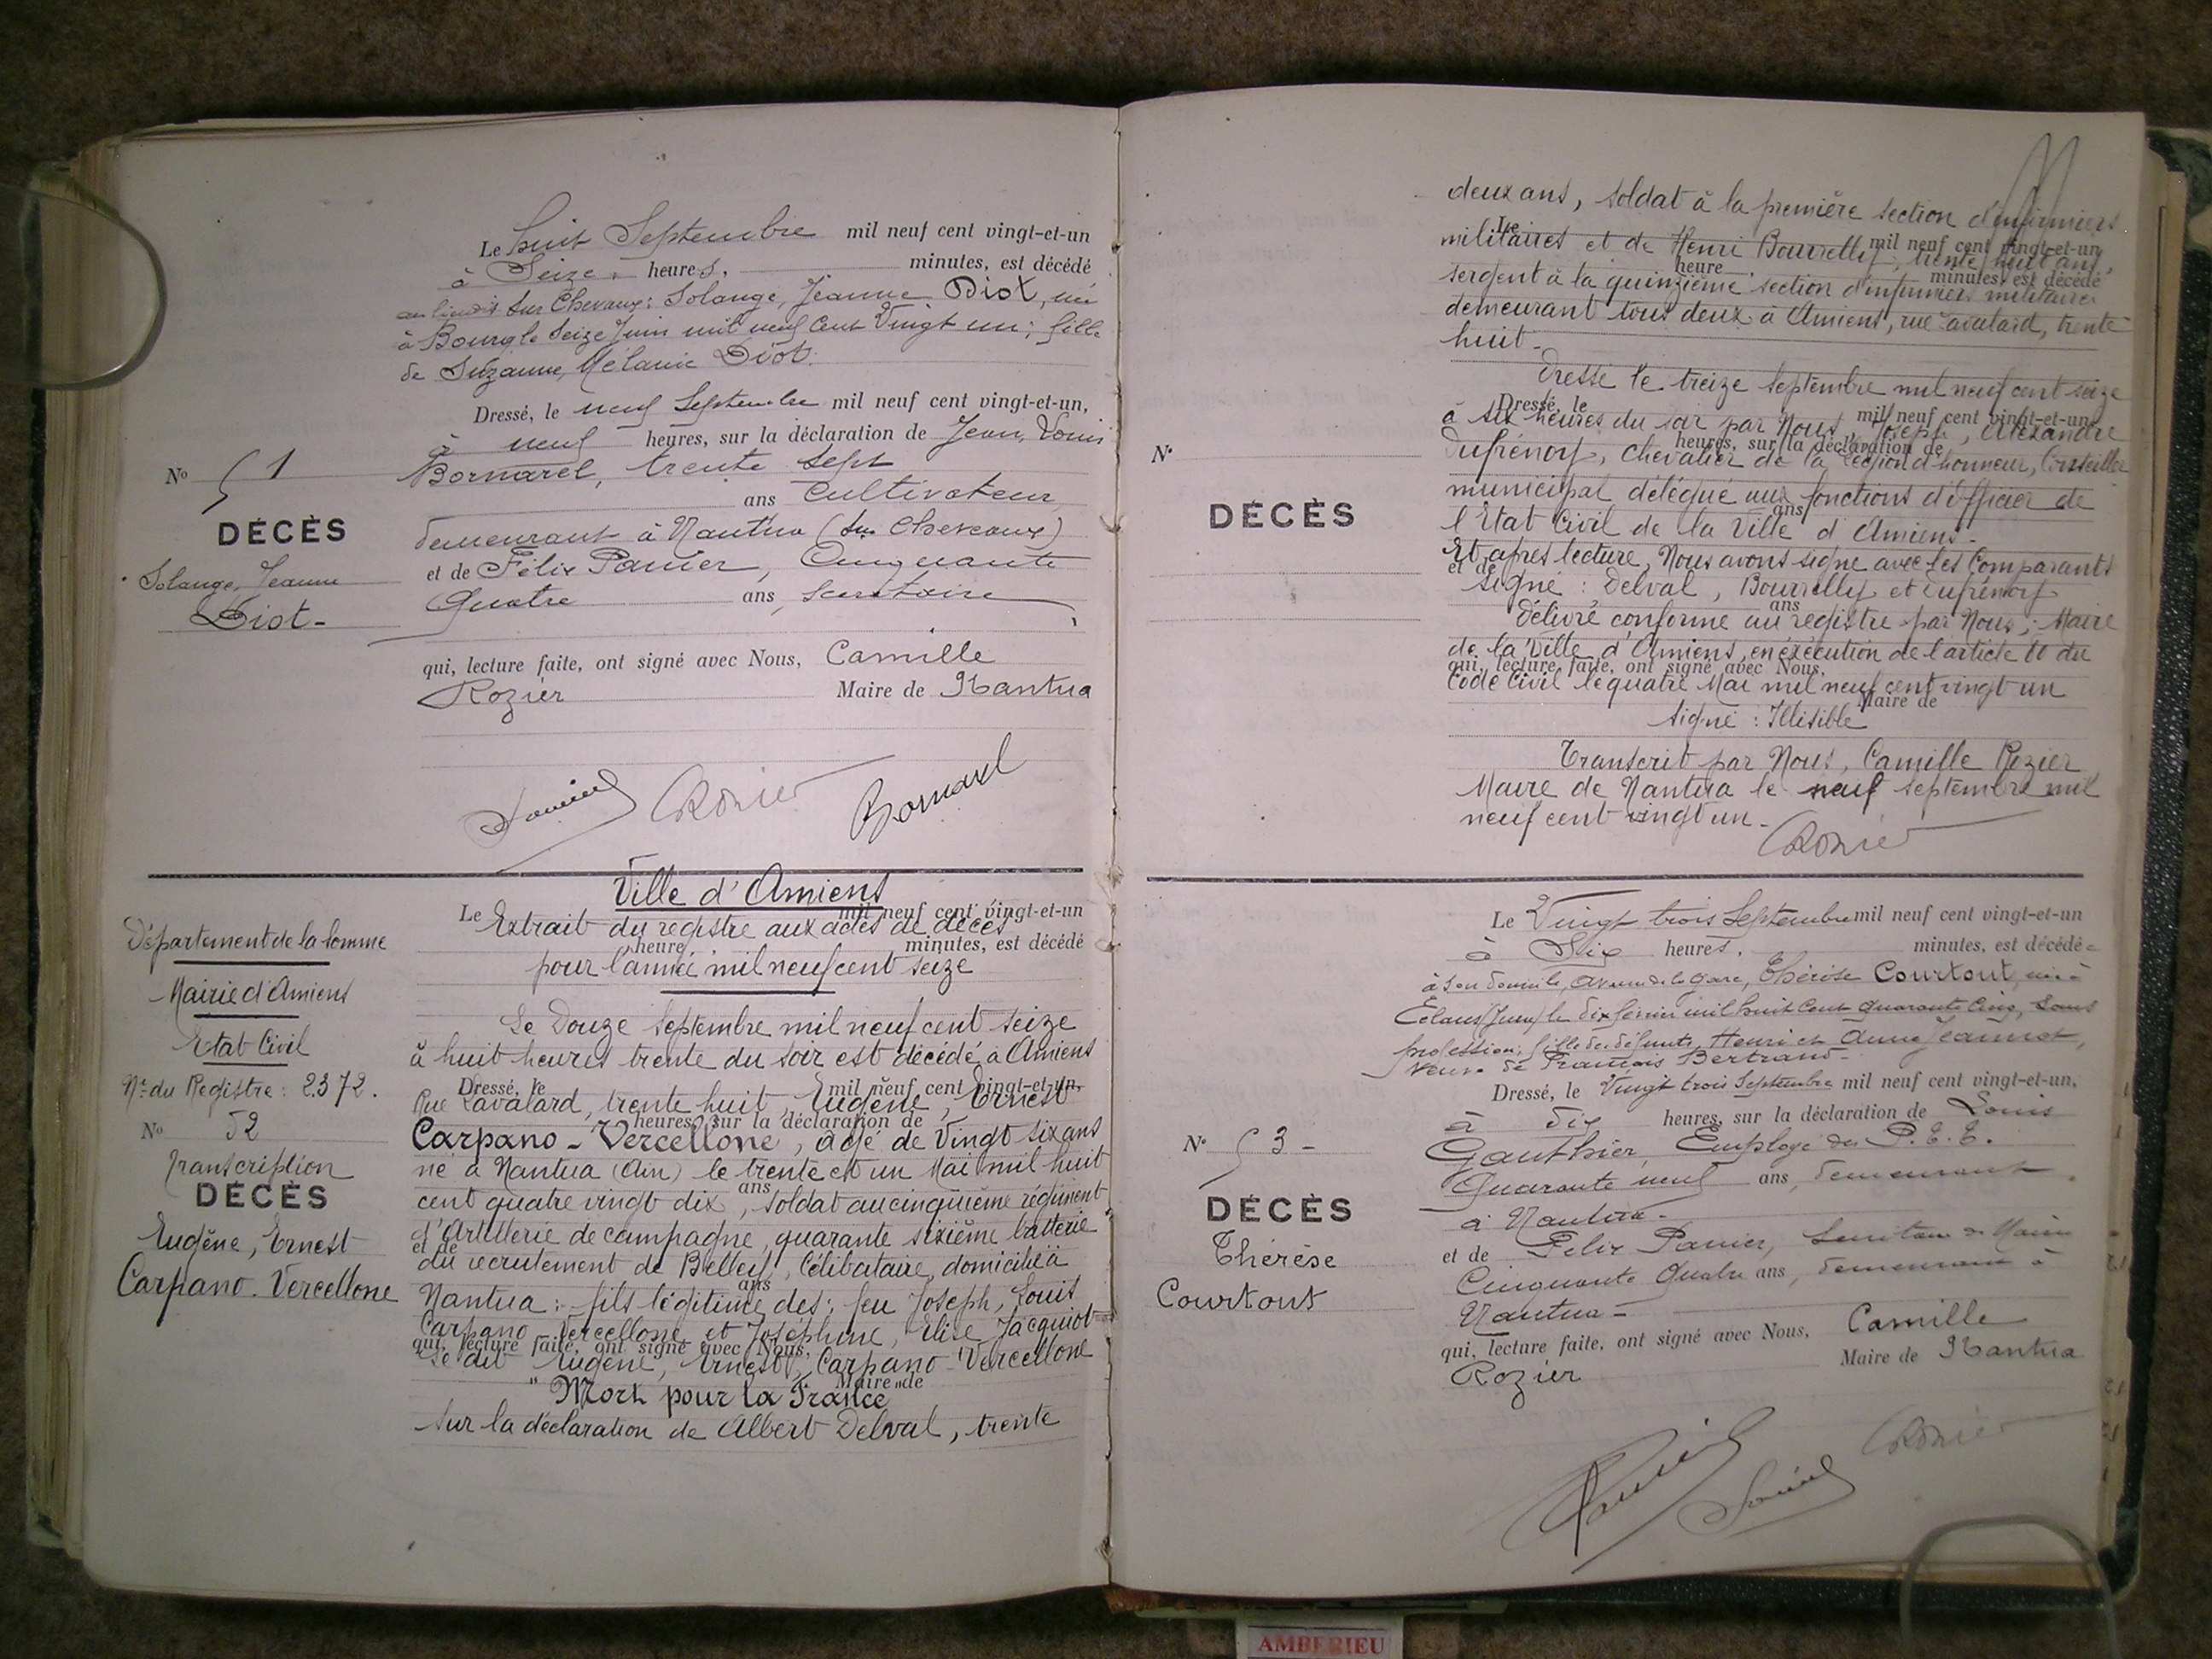 Le huit Septembre mil neuf cent vingt-et-un
à Seize heures, minutes, est décédé
au lieudit Sur Chevaux: Solange, Jeanne Diot, né
à Bourg le Seize Juin mil neuf Cent Vingt un; fille
de Suzanne, Mélanie Diot.
Dressé, le neuf Septembre mil neuf cent vingt-et-un,
à neuf heures, sur la déclaration de Jean, Louis
Bornarel, trente sept
ans Cultivateur
demeurant à Nantua (Sur Cheveaux)
et de Félix Panier, Cinquante
Quatre ans, Secrétaire
qui, lecture faite, ont signé avec Nous, Camille
Rozier Maire de Nantua
Rozier Bornarel
No 51
DÉCÈS
Solange, Jeanne
Diot-
Ville d'Amiens
Le mil neuf cent vingt-et-un
Extrait du registre aux actes de décès
heure minutes, est décédé
pour l'année mil neuf cent seize
Le Douze septembre mil neuf cent seize
à huit heures trente du soir est décédé à Amiens
Dressé, le mil neuf cent vingt-et-un,
Rue Lavalard, trente huit, Eugène, Ernest
heures, sur la déclaration de
Carpano-Vercellone, âgé de Vingt six ans
né à Nantua (Ain) le trente et un Mai mil huit
ans
cent quatre vingt dix, soldat au cinquième régiment
d'Artillerie de campagne, quarante sixième batterie
et de
du recrutement de Belley, Célibataire, domicilié à
ans
Nantua: fils légitime des: feu Joseph, Louis
Carpano Vercellone et Joséphine, Elise Jacquiot
qui, lecture faite, ont signé avec Nous,
Le dit Eugène, Ernest, Carpano-Vercellone
Maire de
"Mort pour la France"
sur la déclaration de Albert Delval, trente
Département de la Somme
Mairie d'Amiens
Etat Civil
No du Registre: 2372.
No 52
Transcription
DÉCÈS
Eugène, Ernest
Carpano-Vercellone
deux ans, soldat à la première section d'infirmiers
Le mil neuf cent vingt-et-un
militaires et de Henri Bourrelly, trente huit ans,
heure minutes, est décédé
sergent à la quinzième section d'infirmiers militaires
demeurant tous deux à Amiens, rue Lavalard, trente
huit-
Dressé le treize septembre mil neuf cent seize
Dressé, le mil neuf cent vingt-et-un,
à six heures du soir par Nous, Joseph, Alexandre
heures, sur la déclaration de
Dufrénoy, Chevalier de la Légion d'honneur, Conseiller
municipal délégué aux fonctions d'officier de
ans
l'Etat Civil de la Ville d'Amiens-
Et après lecture, Nous avons signé avec les Comparants
et de
signé: Delval, Bourrelly et Dufrénoy
ans
Délivré conforme au registre par Nous, Maire
de la Ville d'Amiens, en exécution de l'article 80 du
qui, lecture faite, ont signé avec Nous,
Code Civil le quatre Mai mil neuf cent vingt un
Maire de
signé: Illisible
Transcrit par Nous, Camille Rozier
Maire de Nantua le neuf septembre mil
neuf cent vingt un-
Rozier
No
DÉCÈS
Le Vingt trois Septembre mil neuf cent vingt-et-un
à Six heures. minutes, est décédé
à son domicile, avenue de la gare, Thérèse Courtout, née à
Eclans (Jura) le dix février mil huit Cent quarante Cinq, Sans
profession, fille des défunts, Henri et Anne Jeannot,
veuve de François Bertrand-
Dressé, le Vingt trois Septembre mil neuf cent vingt-et-un,
à dix heures, sur la déclaration de Louis
Gauthier, Employé des P.T.T.
Quarante neuf ans, demeurant
à Nantua-
et de Félix Panier, Secrétaire de Mairie
Cinquante Quatre ans, demeurant à
Nantua-
qui, lecture faite, ont signé avec Nous, Camille
Rozier Maire de Nantua
Rozier
No 53-
DÉCÈS
Thérèse
Courtout
AMBERIEU